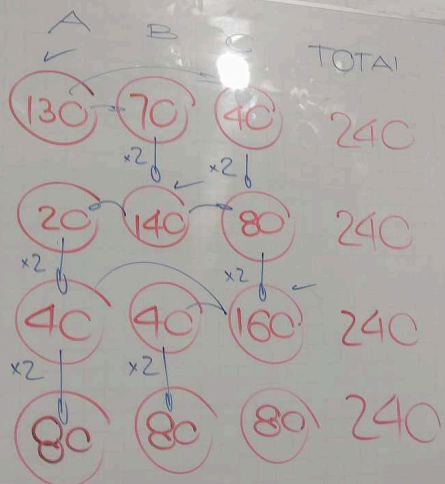 A B C TOTAL
130 70 40 240
×2 ×2
20 140 80 240
×2 ×2
40 40 160 240
×2 ×2
80 80 80 240